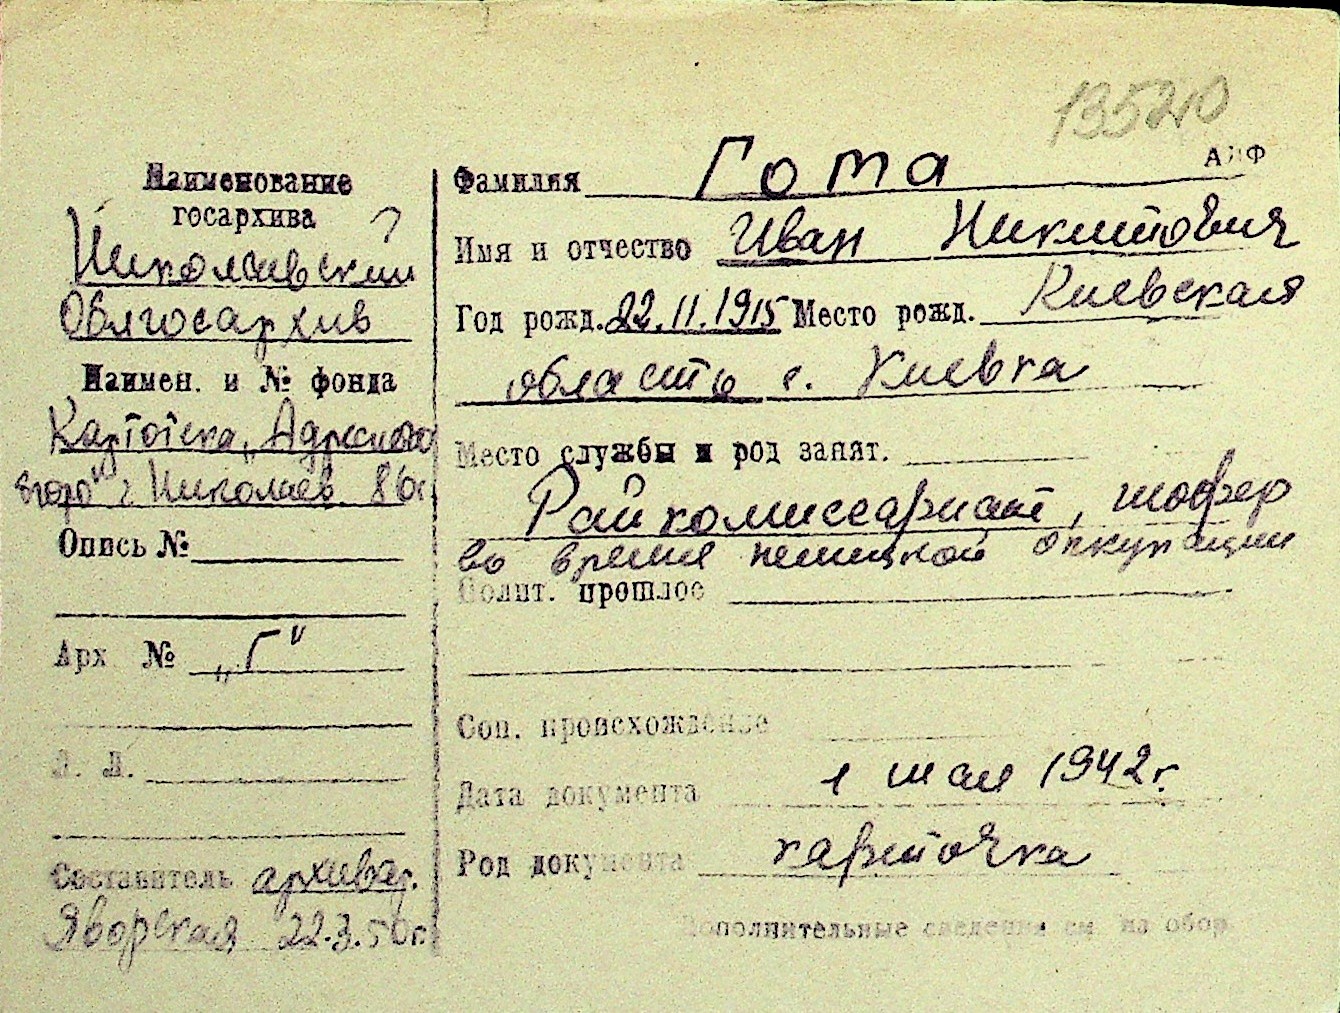 13520
АИФ
Наименование
госархива
Николаевский
Облгосархив
Наимен. и № фонда
Картотека „Адресного
бюро" г. Николаев 86г.
Опись №
Арх № „Г"
Л. Л.
Составитель архивар.
Яворская 22.3.50г.
Фамилия Гома
Имя и отчество Иван Никитович
Год рожд. 22.11.1915 Место рожд. Киевская
область с. Киевка
Место службы и род занят.
Райкомиссариат, шофер
во время немецкой оккупации
Полит. прошлое
Соц. происхождение
Дата документа 1 мая 1942г.
Род документа карточка
Дополнительные сведения см. на обор.